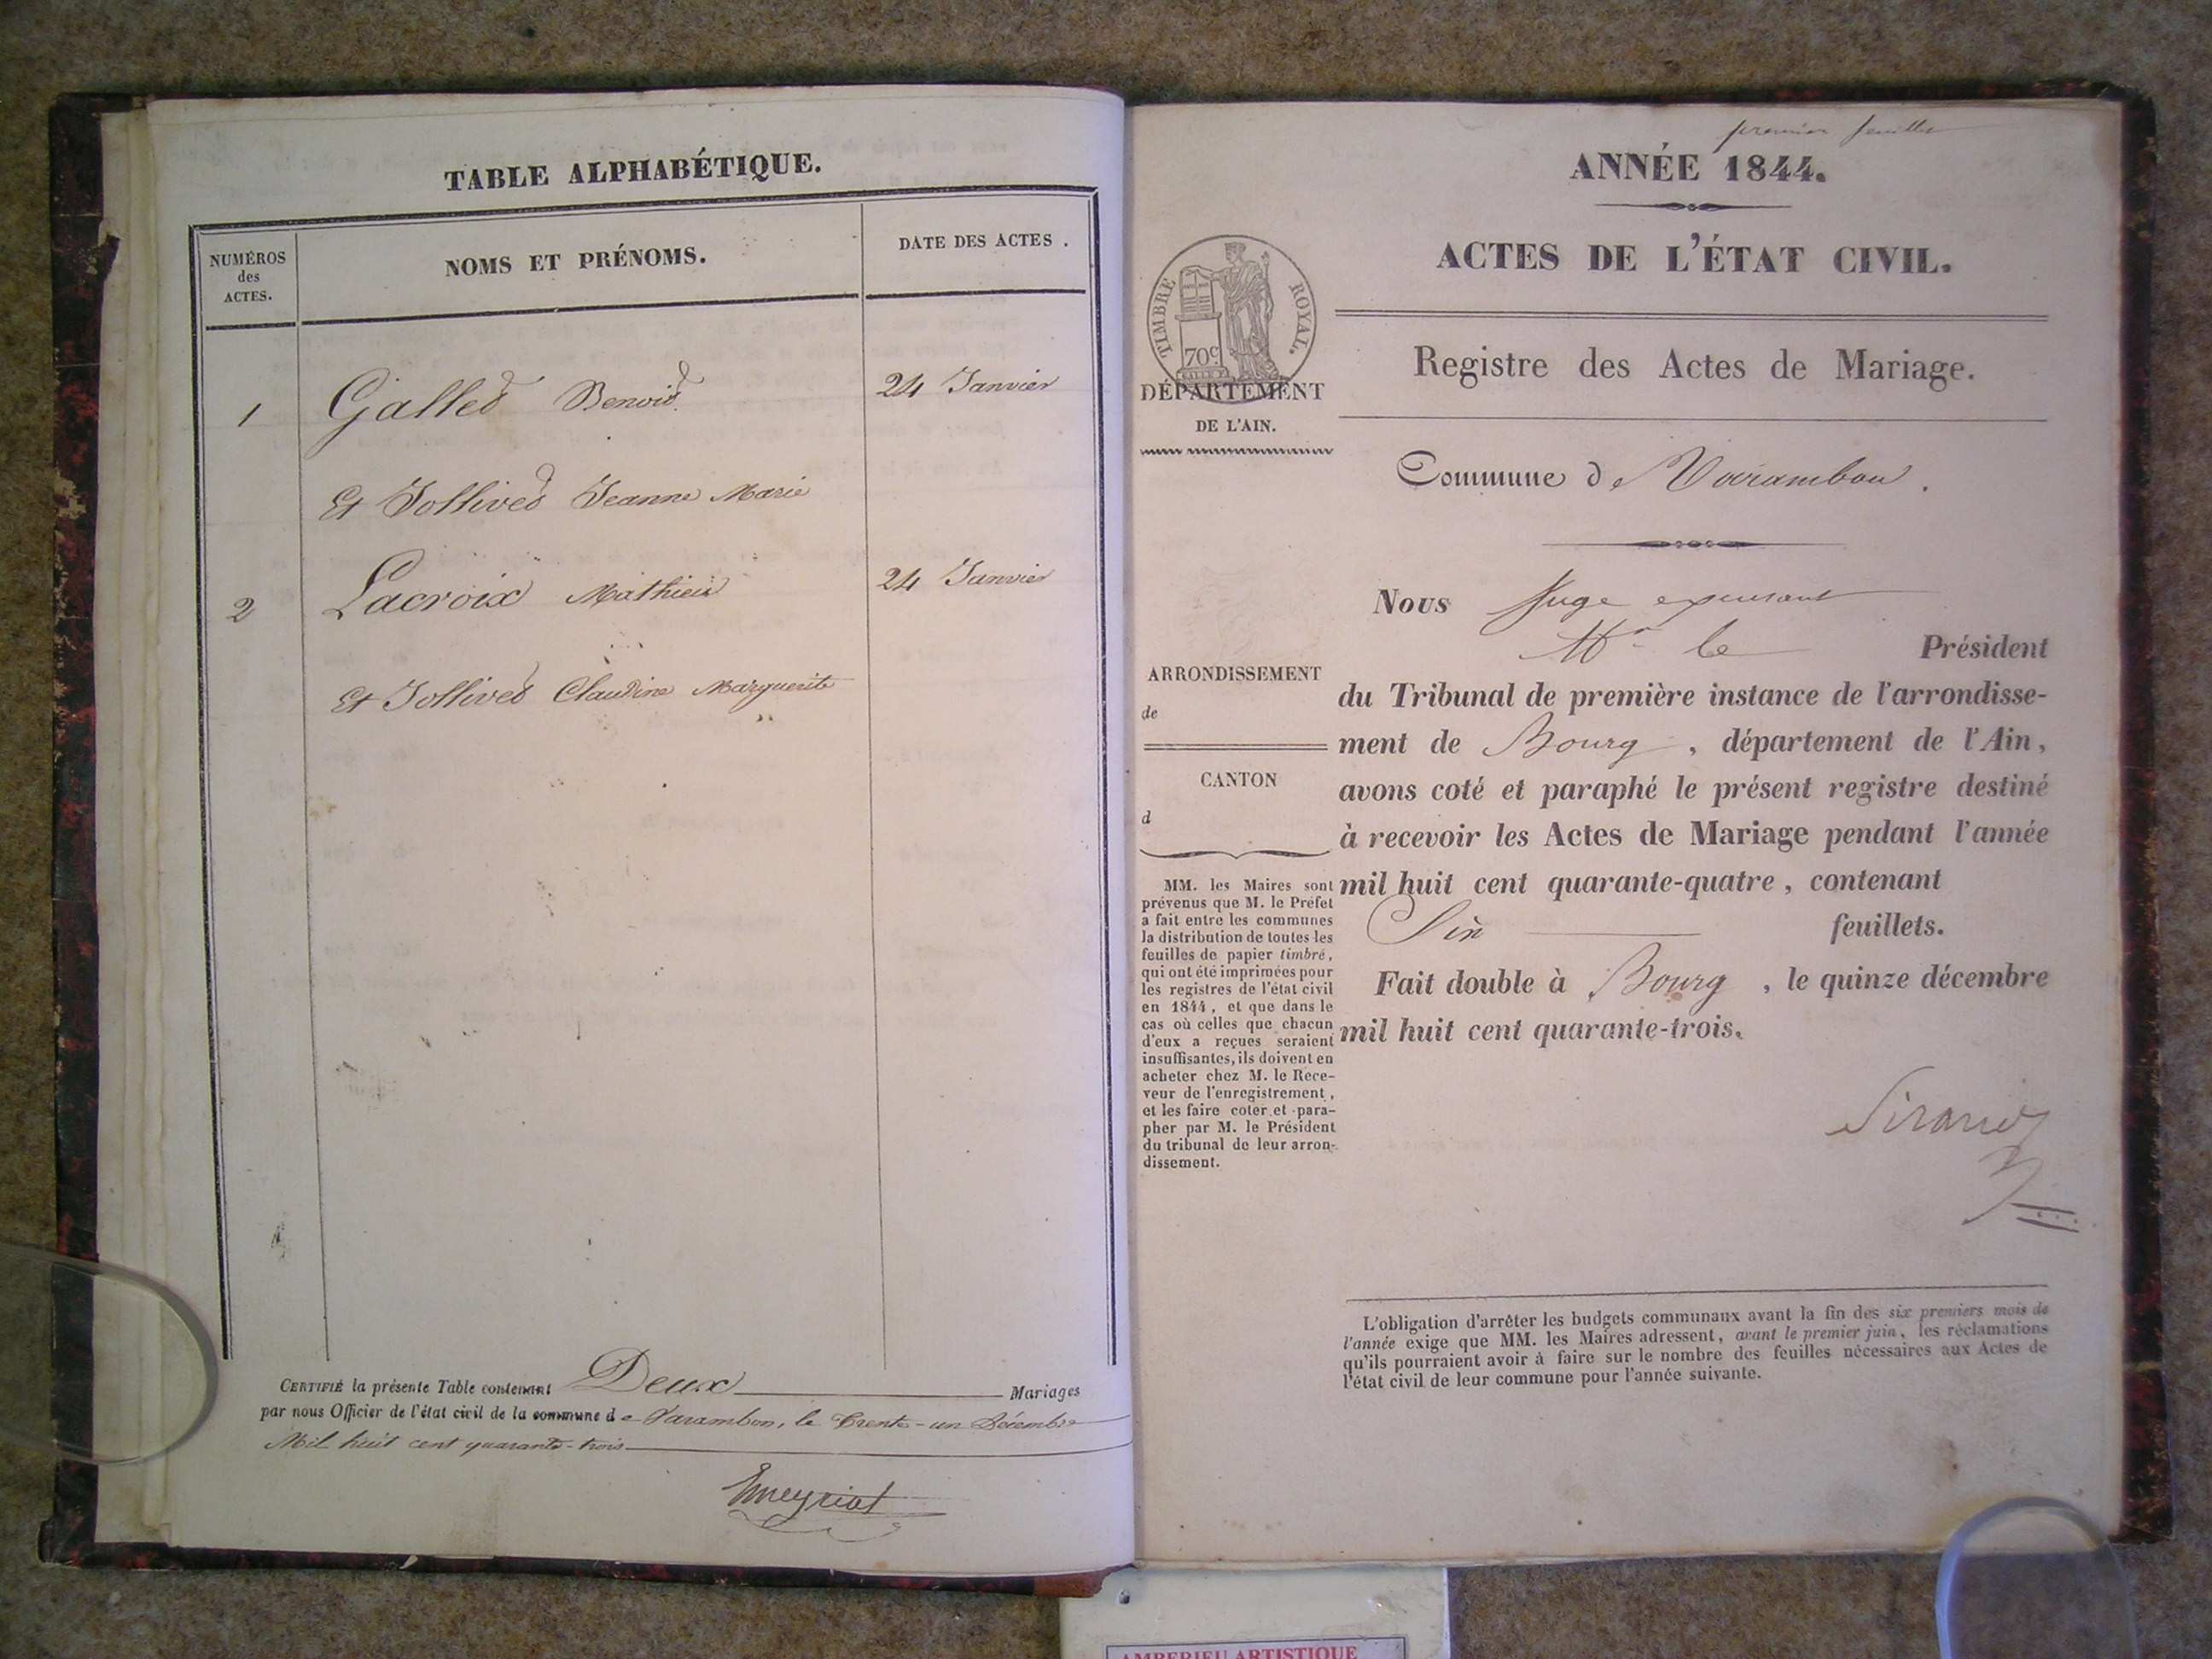 TABLE ALPHABÉTIQUE.
NUMÉROS
des
ACTES.
NOMS ET PRÉNOMS.
DATE DES ACTES .
1
Gallet Benoit
24 Janvier
Et Jollivet Jeanne Marie
2
Lacroix Mathieu
24 Janvier
Et Jollivet Claudine Marguerite
CERTIFIÉ la présente Table contenant Deux Mariages
par nous Officier de l'état civil de la commune de Varambon, le Trente-un Décembre
Mil huit cent quarante-trois
premier feuillet
ANNÉE 1844.
ACTES DE L'ÉTAT CIVIL.
TIMBRE ROYAL.
70c.
DÉPARTEMENT
DE L'AIN.
Registre des Actes de Mariage.
Commune de Varambon.
Nous Juge
Mr le Président
du Tribunal de première instance de l'arrondisse-
ment de Bourg, département de l'Ain,
avons coté et paraphé le présent registre destiné
à recevoir les Actes de Mariage pendant l'année
mil huit cent quarante-quatre, contenant
Six feuillets.
Fait double à Bourg, le quinze décembre
mil huit cent quarante-trois.
ARRONDISSEMENT
de
CANTON
d
MM. les Maires sont
prévenus que M. le Préfet
a fait entre les communes
la distribution de toutes les
feuilles de papier timbré,
qui ont été imprimées pour
les registres de l'état civil
en 1844, et que dans le
cas où celles que chacun
d'eux a reçues seraient
insuffisantes, ils doivent en
acheter chez M. le Rece-
veur de l'enregistrement,
et les faire coter et para-
pher par M. le Président
du tribunal de leur arron-
dissement.
L'obligation d'arrêter les budgets communaux avant la fin des six premiers mois de
l'année exige que MM. les Maires adressent, avant le premier juin, les réclamations
qu'ils pourraient avoir à faire sur le nombre des feuilles nécessaires aux Actes de
l'état civil de leur commune pour l'année suivante.
AMBERIEU ARTISTIQUE